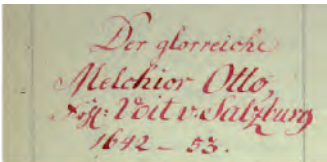 Der glorreiche
Melchior Otto,
Voit v. Salzburg
1642 – 53.